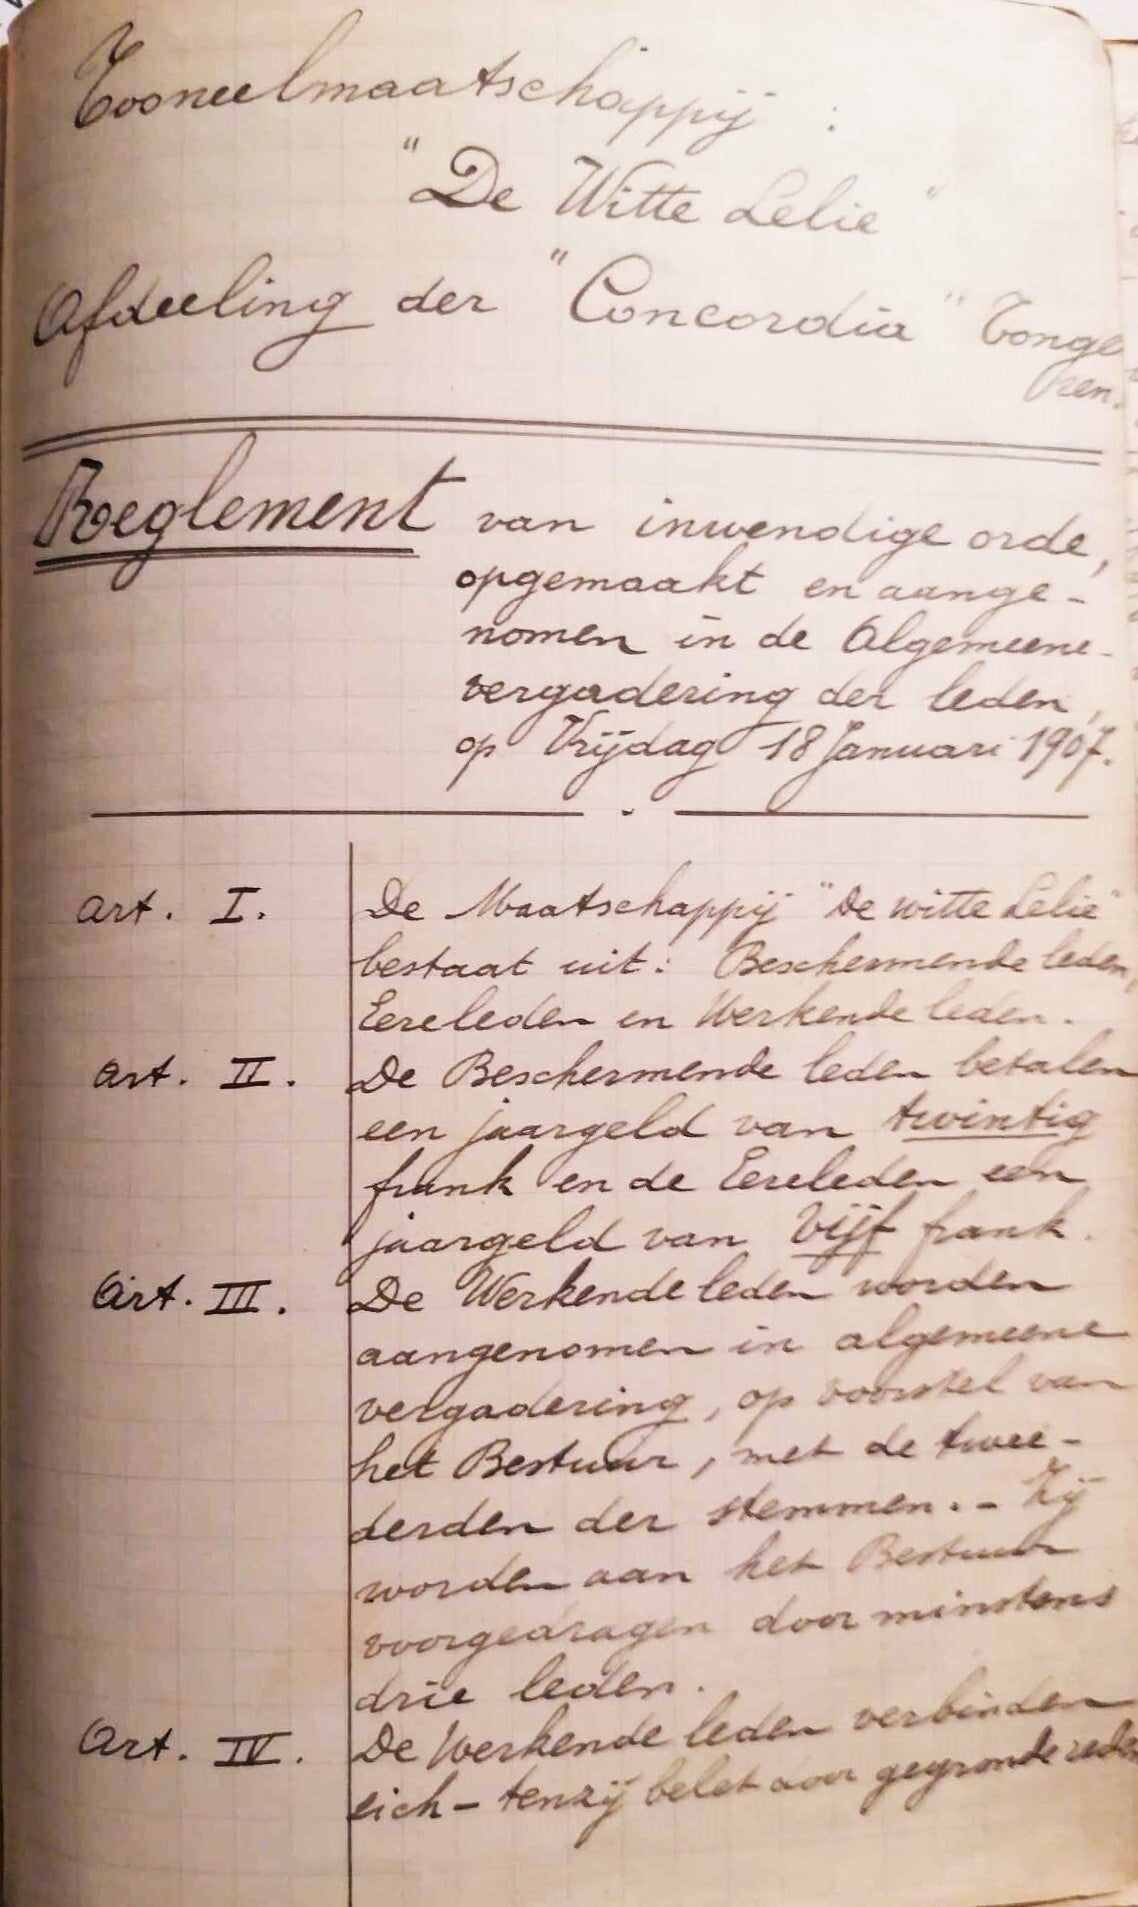 Tooneelmaatschappij :
"De Witte Lelie"
Afdeeling der "Concordia" Tonge
ren.
Reglement van inwendige orde,
opgemaakt en aange-
nomen in de Algemeene-
vergadering der leden,
op Vrijdag 18 Januari 1907.
Art. I. De Maatschappij "De witte Lelie"
bestaat uit: Beschermende leden,
Eereleden en Werkende leden.
Art. II. De Beschermende leden betalen
een jaargeld van twintig
frank en de Eereleden een
jaargeld van Vijf frank.
Art. III. De Werkende leden worden
aangenomen in algemeene
vergadering, op voorstel van
het Bestuur, met de twee-
derden der stemmen. - Zij
worden aan het Bestuur
voorgedragen door minstens
drie leden.
Art. IV. De Werkende leden verbinden
zich - tenzij belet door gegronde reden